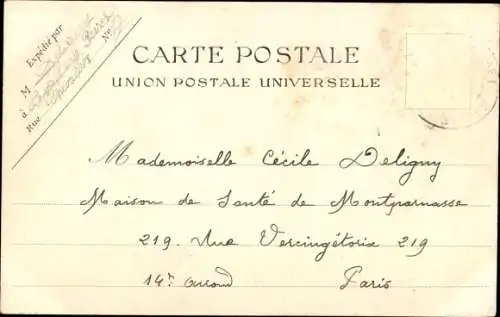 Expédié par
M
à
Rue Nº
CARTE POSTALE
UNION POSTALE UNIVERSELLE
Mademoiselle Cécile Deligny
Maison de Santé de Montparnasse
219. Rue Vercingétorix 219
14e arrond Paris